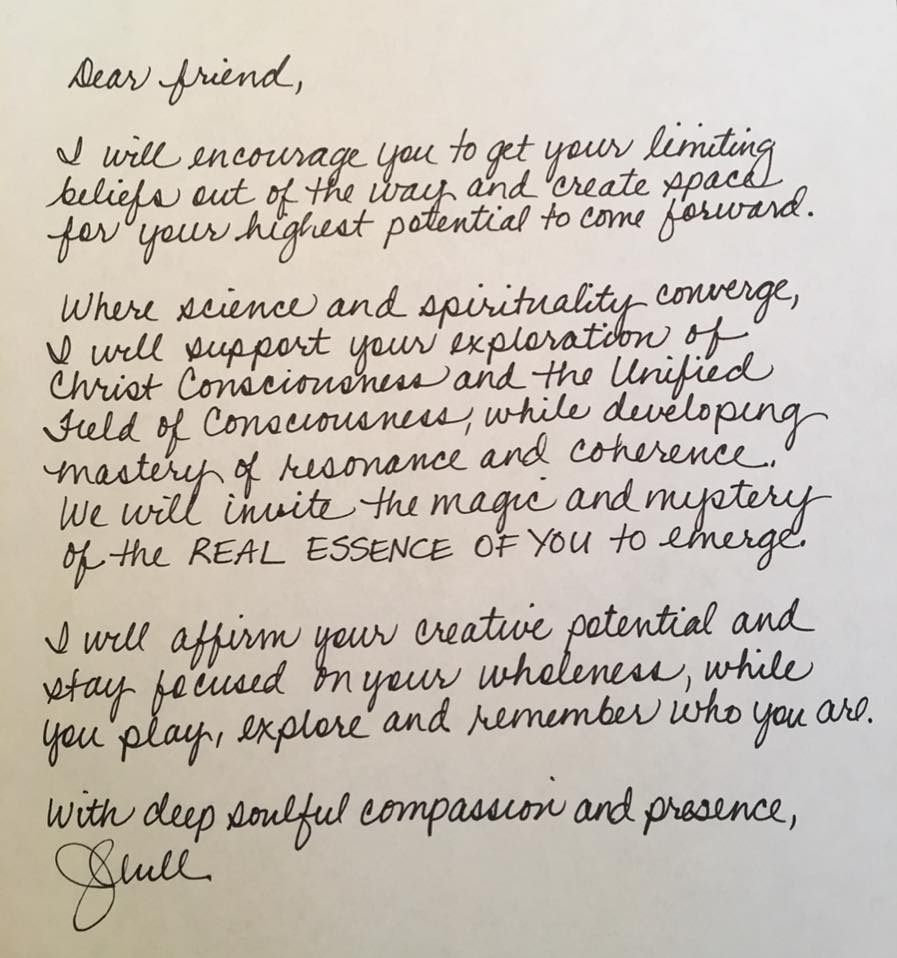 Dear friend,
I will encourage you to get your limiting
beliefs out of the way and create space
for your highest potential to come forward.
Where science and spirituality converge,
I will support your exploration of
Christ Consciousness and the Unified
Field of Consciousness, while developing
mastery of resonance and coherence.
We will invite the magic and mystery
of the REAL ESSENCE OF YOU to emerge.
I will affirm your creative potential and
stay focused on your wholeness, while
you play, explore and remember who you are.
With deep soulful compassion and presence,